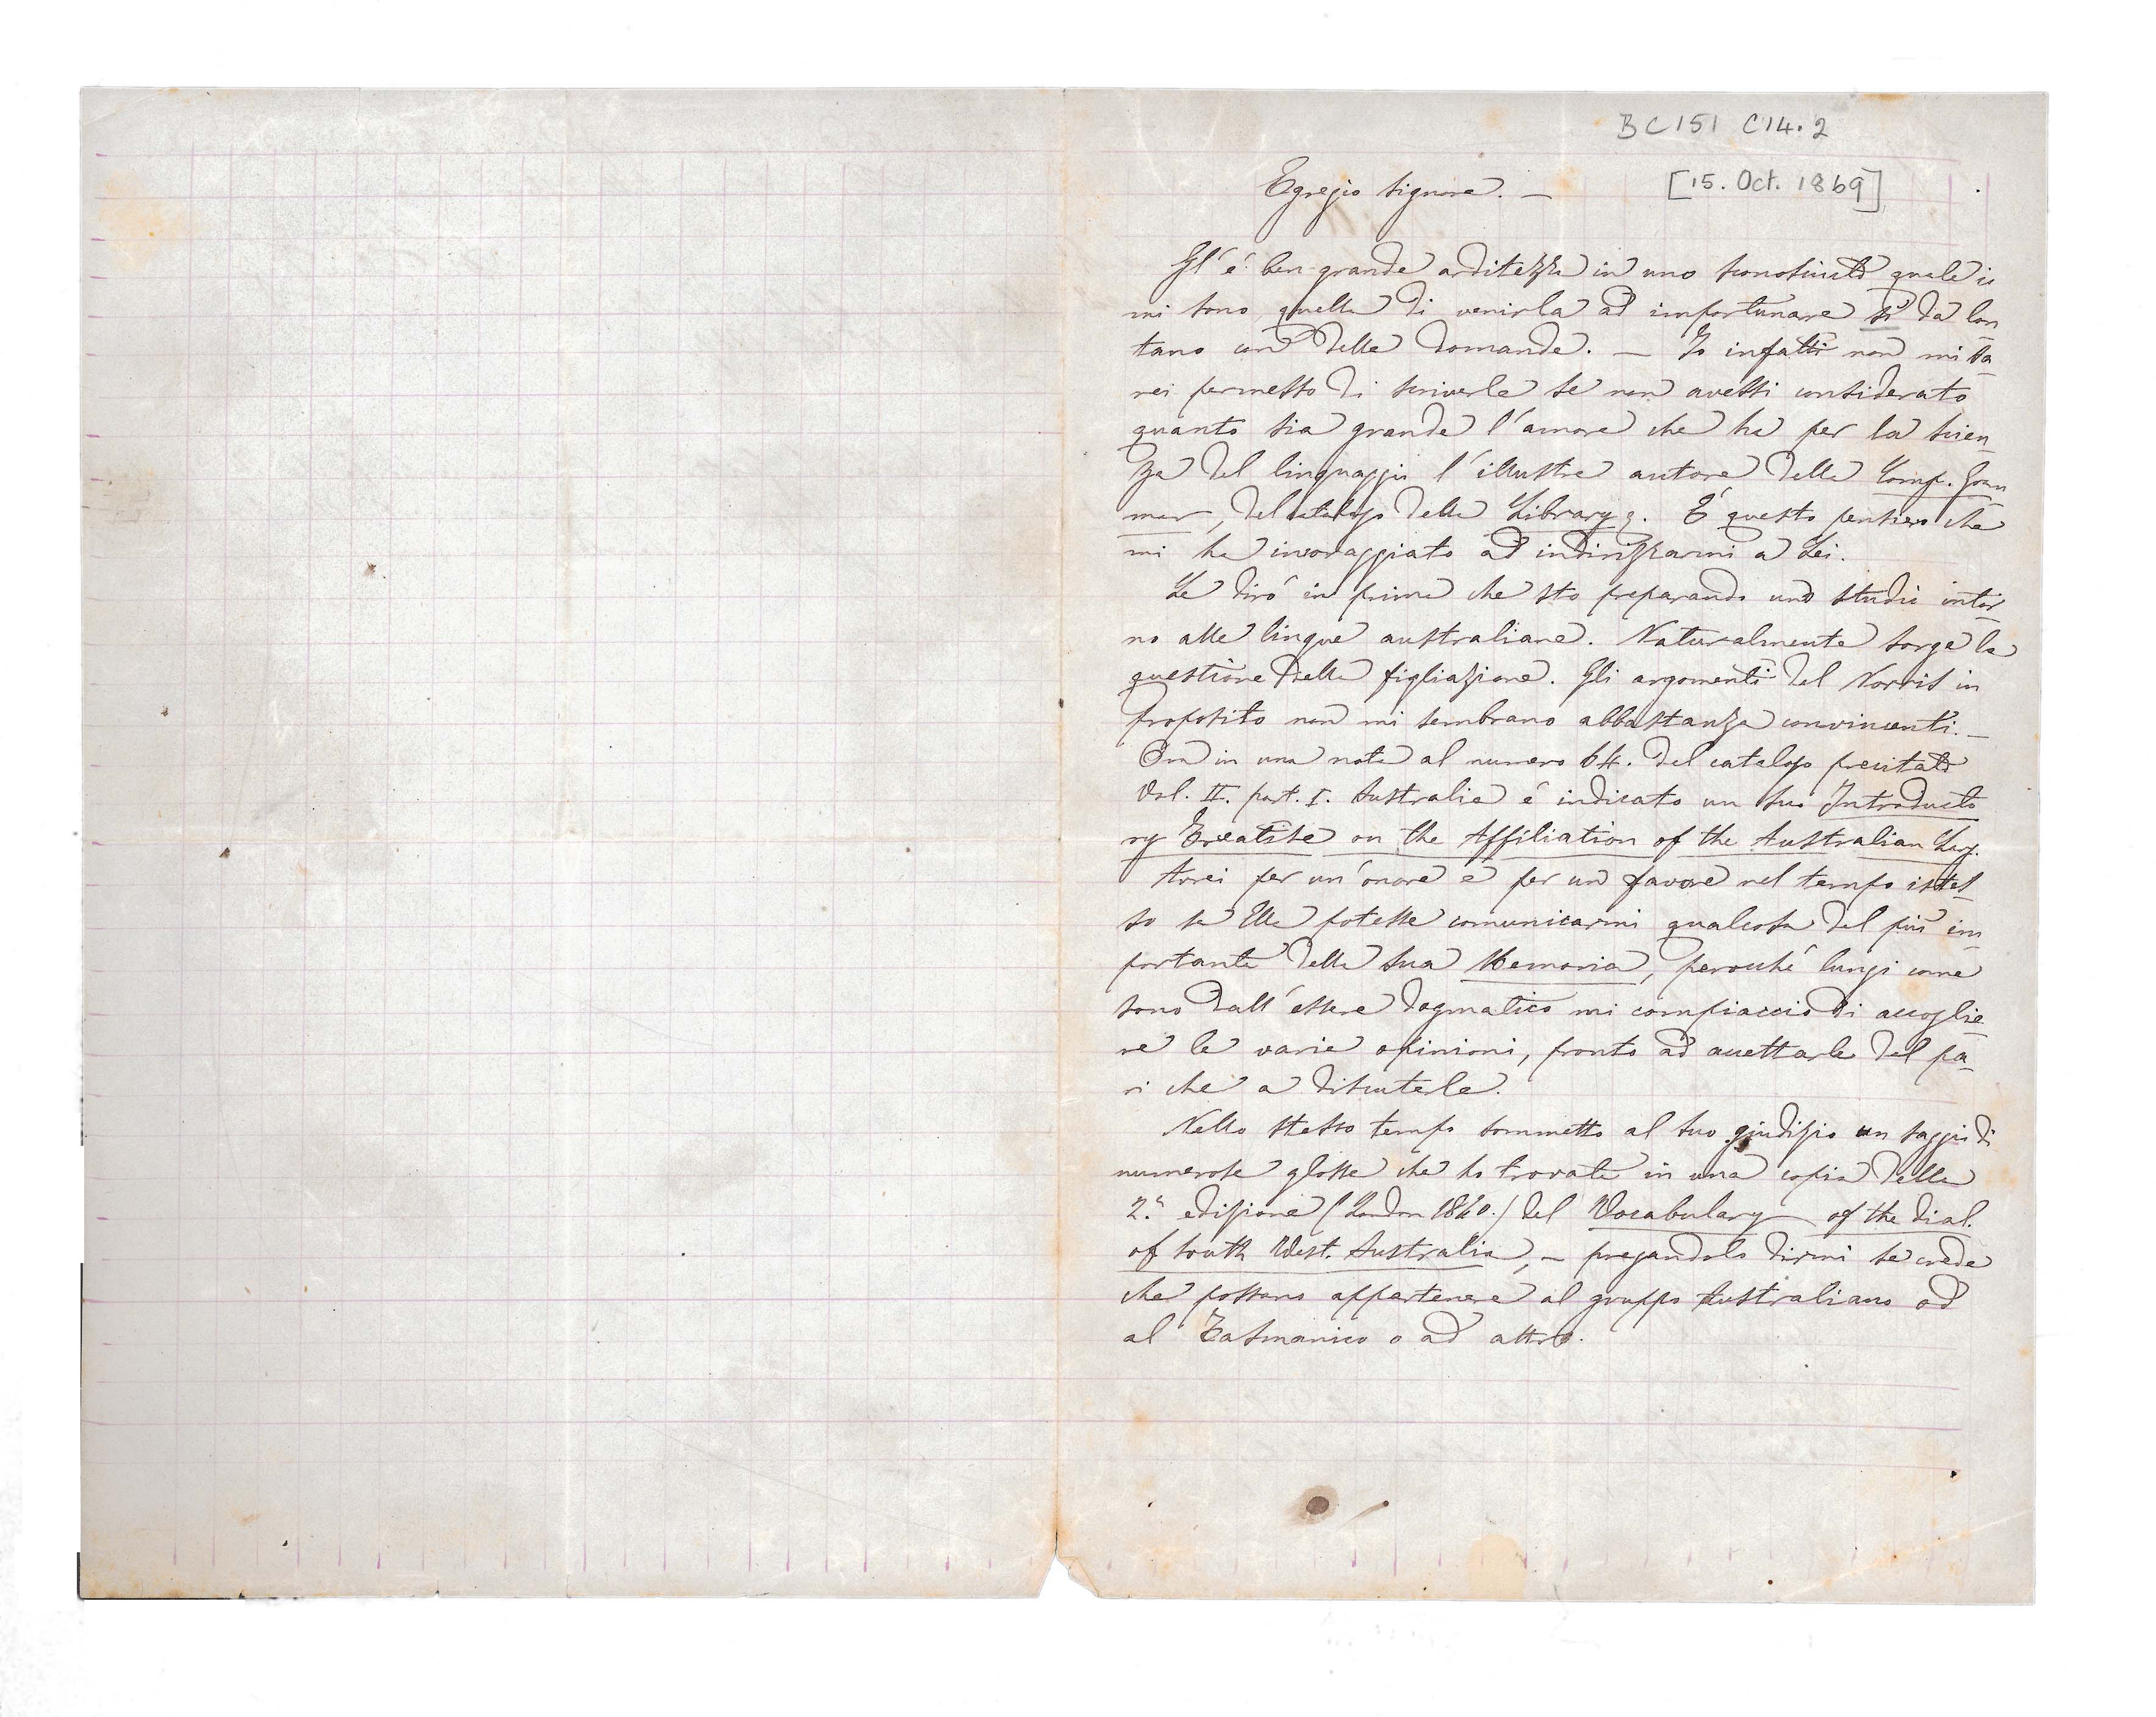 BC151 C14.2
Egregio Signore. —
[15. Oct. 1869]
Gl'é ben grande arditezza in uno sconosciuto quale io
mi sono quella di venirla ad importunare sì da lon
tano con delle domande. — Io infatti non mi sa-
rei permesso di scriverle se non avessi considerato
quanto sia grande l'amore che ha per la scien
za del linguaggio l'illustre autore della Comp. Gram
mar, del catalogo della Library g. É questo pensiero che
mi ha incoraggiato ad indirizzarmi a Lei.
Le diró in prima che sto preparando uno studio intor
no alle lingue australiane. Naturalmente sorge la
questione della figliazione. Gli argomenti del Norris in
proposito non mi sembrano abbastanza convincenti. —
Ora in una nota al numero 64. del catalogo precitato
Vol. II. part. I. Australia é indicato un suo Introducto
ry Treatise on the Affiliation of the Australian Lang.
Avrei per un'onore e per un favore nel tempo istes-
so se Ella potesse comunicarmi qualcosa del più im
portante della sua Memoria, perocché lungi come
sono dall'essere dogmatico mi compiaccio di accoglie
re le varie opinioni, pronto ad accettarle del pa-
ri che a discuterle.
Nello stesso tempo sommetto al suo giudizio un saggio di
numerose glosse che ho trovate in una copia della
2.a edizione (London 1840.) del Vocabulary of the dial.
of South West. Australia, — pregandolo dirmi se crede
che possano appartenere al gruppo Australiano od
al Tasmanico o ad altro.